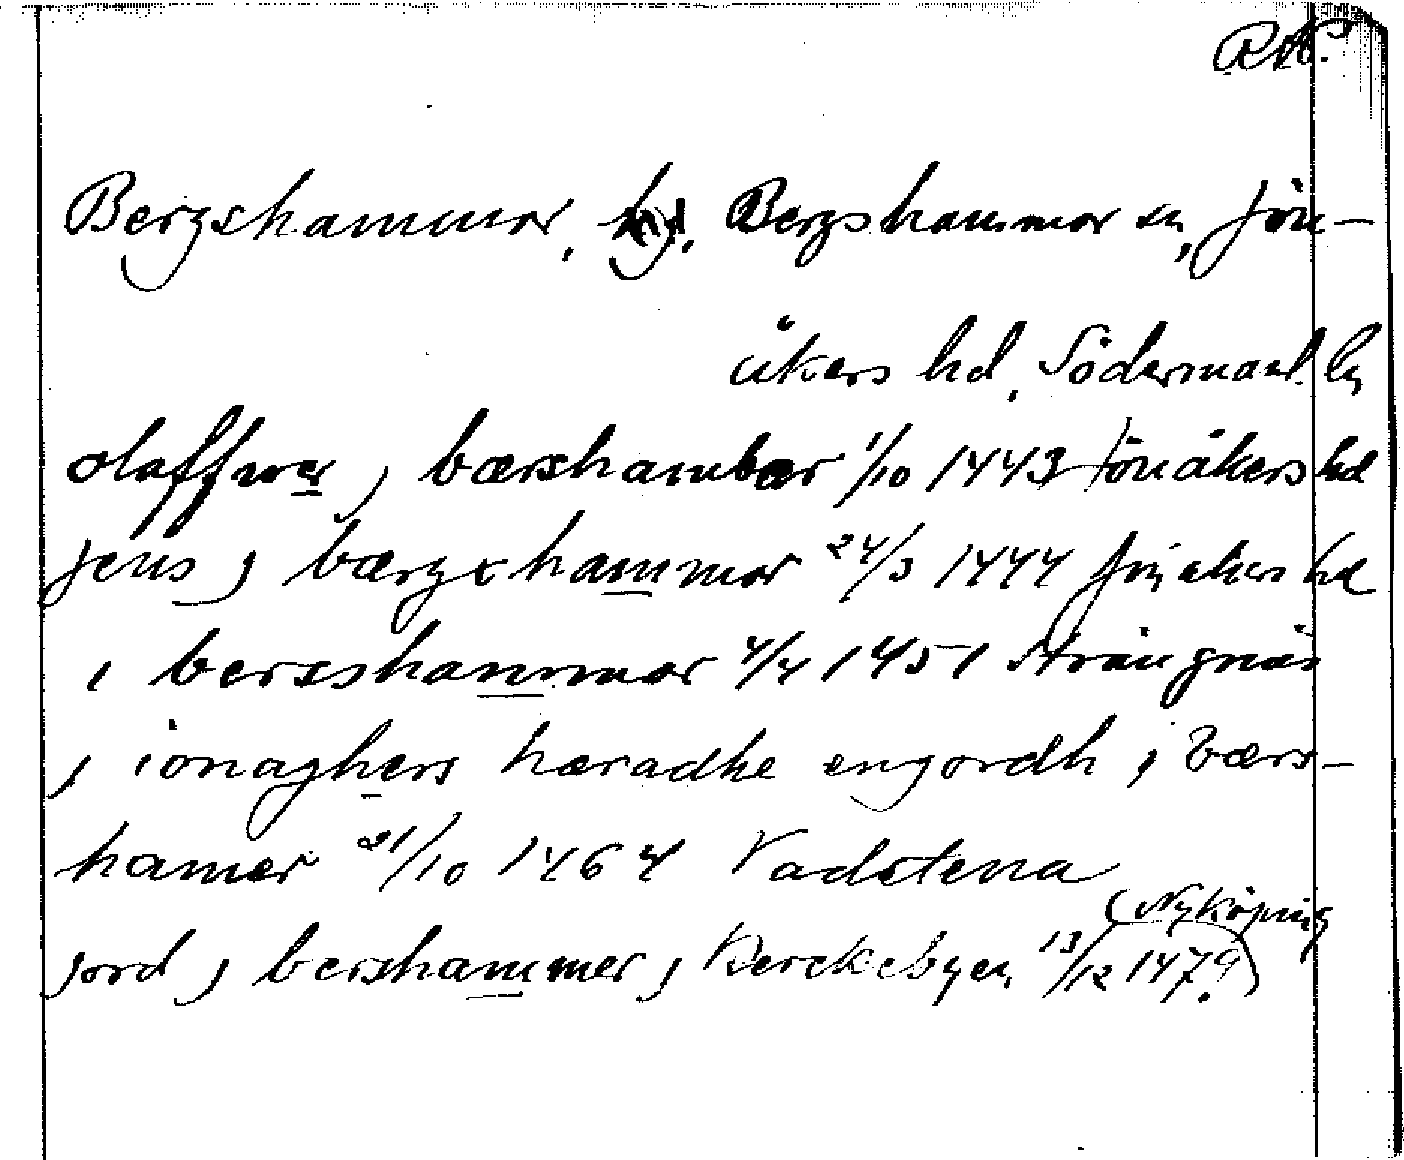 RA.
Bergshammar, by, Bergshammar sn, Jön-
åkers hd, Södermanl. ln
olaffwer j bærshambær 1/10 1443 Jönåkers hd
jens j bærgxhammar 24/3 1444 Jönåkers hd
i bersshammar 4/4 1451 Strängnäs
j ionaghers hæradhe en gordh j bærs-
hamer 21/10 1464 Vadstena
jord j bershammer j Kerckebyen 13/12 1479
(Nyköping)